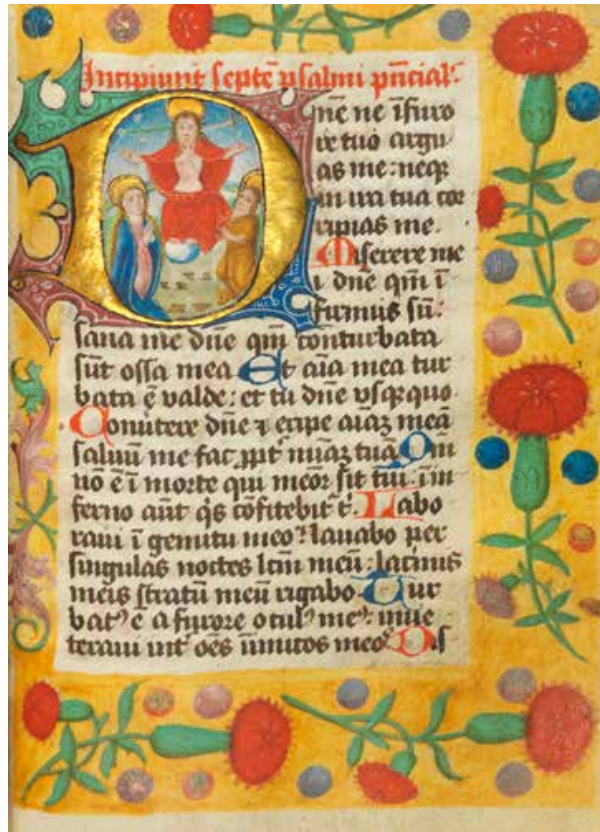 Incipiunt septē psalmi pn̄cial'.
Dn̄e ne ī furo
re tuo argu
as me: neq;
in ira tua cor
ripias me.
Miserere me
i dn̄e qm̄ ī
firmus sū:
sana me dn̄e qm̄ conturbata
sūt ossa mea Et aīa mea tur
bata ē valde: et tu dn̄e vsq; quo
Conūtere dn̄e ⁊ eripe aīaz meā
saluū me fac
Qm̄
nō ē ī morte qui meor sit tui: in in
ferno aūt q̄s cōfitebit t'. Labo
raui ī gemitu meo: lauabo per
singulas noctes lc̄m meū: lacrimis
meis stratū meū rigabo Tur
batꝰ ē a furore oculꝰ meꝰ: inue
teraui int' oēs inimicos meos Dis